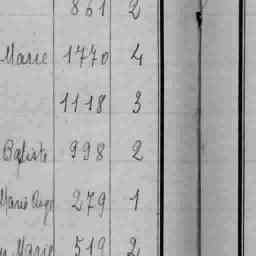 861 2
Marie 1770 4
1118 3
Batiste 998 2
Marie Ang 279 1
Marie 519 2